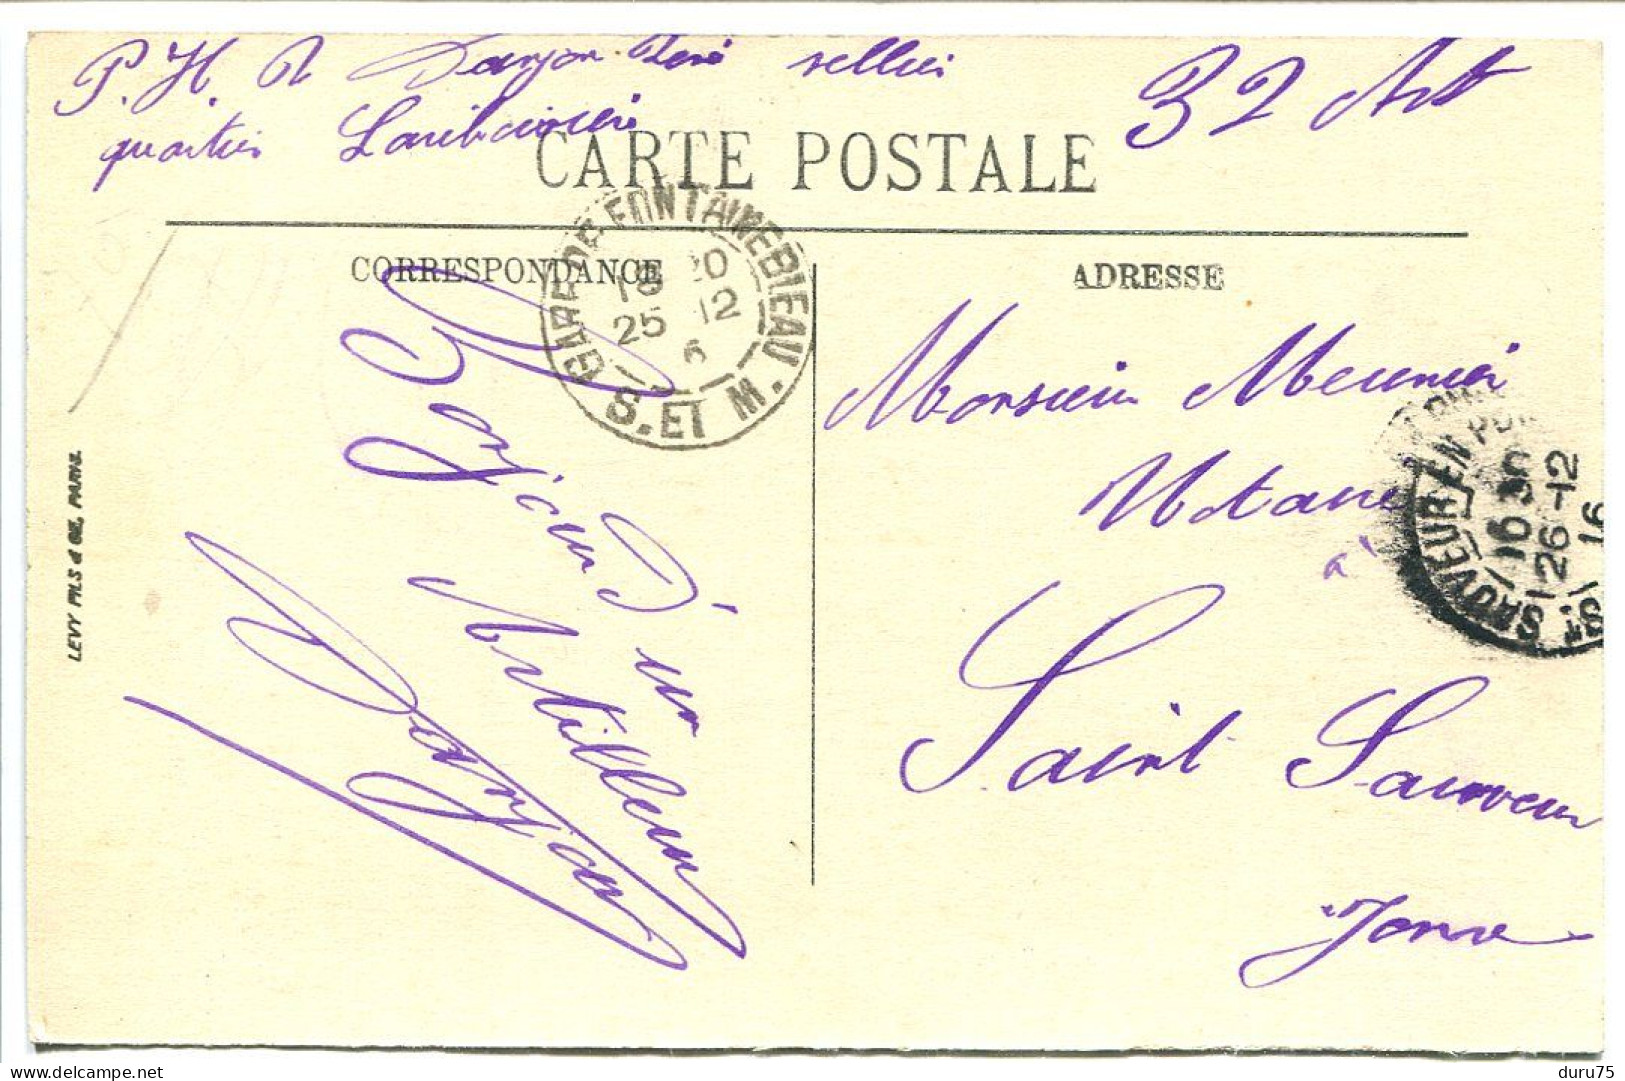 P.H.R Danjou René sellier 32 Art
quartier Lariboisière
CARTE POSTALE
CORRESPONDANCE
ADRESSE
GARE DE FONTAINEBLEAU
20
25 -12
6
S. ET M.
Bonjour d'un
Artilleur
Danjou
Monsieur Meunier
Notaire
à
Saint Sauveur
Yonne
ST SAUVEUR EN PUIS
16 30
26 -12
16
LEVY FILS & CIE, PARIS.
duru75